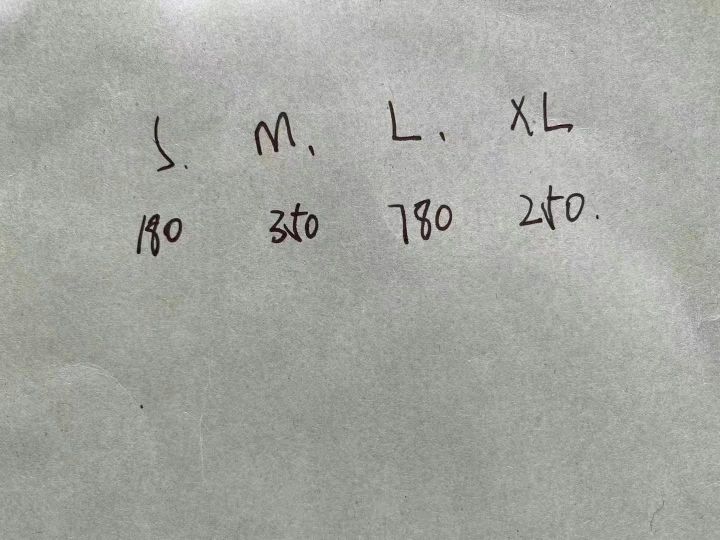 S. M, L. XL
180 350 780 250.